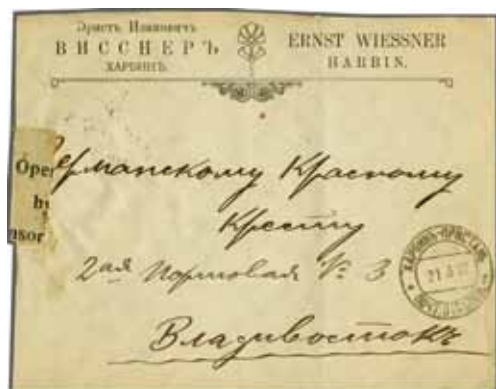 Эрнстъ Ивановичъ
ВИССНЕРЪ
ХАРБИНЪ.
ERNST WIESSNER
HARBIN.
Open
by
nsor
Германскому Красному
Кресту
2ая Портовая № 3
Владивостокъ
ХАРБИНЪ-ПРИСТАНЬ